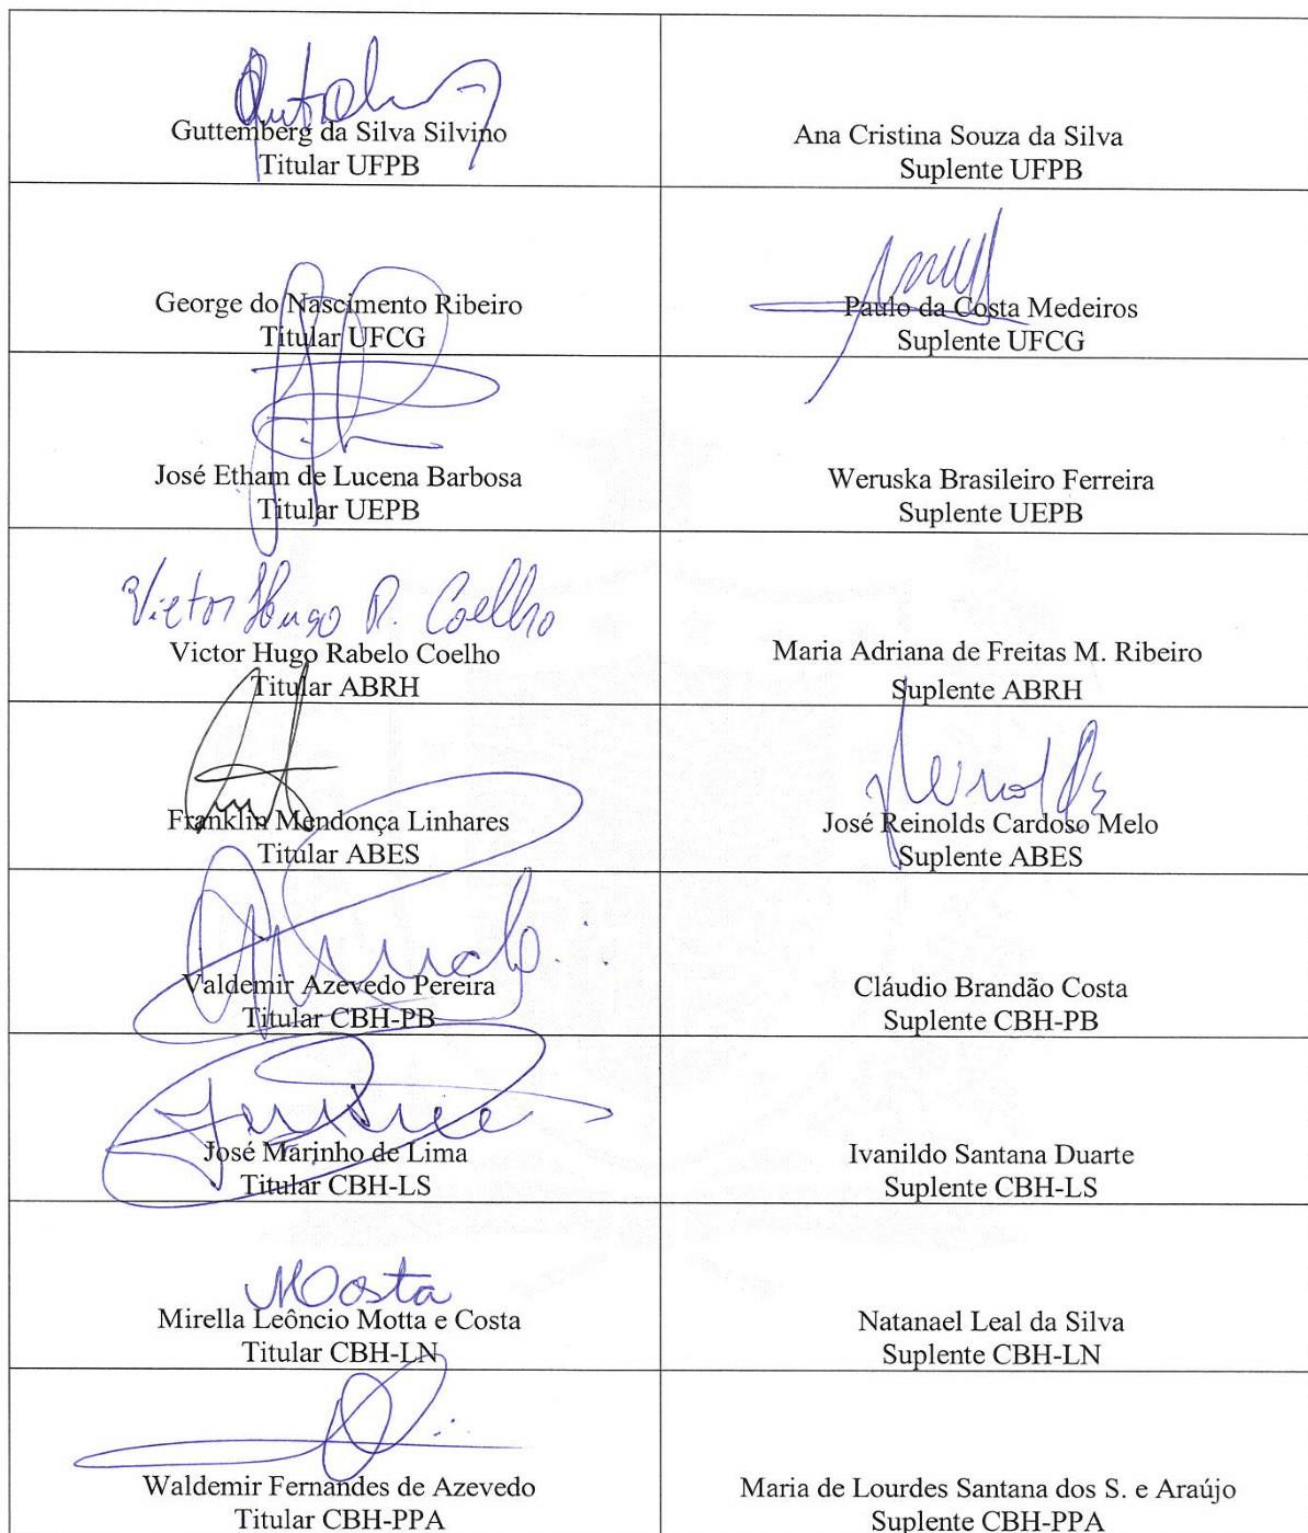 Guttemberg da Silva Silvino
Titular UFPB
Ana Cristina Souza da Silva
Suplente UFPB
George do Nascimento Ribeiro
Titular UFCG
Paulo da Costa Medeiros
Suplente UFCG
José Etham de Lucena Barbosa
Titular UEPB
Weruska Brasileiro Ferreira
Suplente UEPB
Victor Hugo R. Coelho
Victor Hugo Rabelo Coelho
Titular ABRH
Maria Adriana de Freitas M. Ribeiro
Suplente ABRH
Franklin Mendonça Linhares
Titular ABES
Reinolds
José Reinolds Cardoso Melo
Suplente ABES
Valdemir Azevedo Pereira
Titular CBH-PB
Cláudio Brandão Costa
Suplente CBH-PB
José Marinho de Lima
Titular CBH-LS
Ivanildo Santana Duarte
Suplente CBH-LS
MCosta
Mirella Leôncio Motta e Costa
Titular CBH-LN
Natanael Leal da Silva
Suplente CBH-LN
Waldemir Fernandes de Azevedo
Titular CBH-PPA
Maria de Lourdes Santana dos S. e Araújo
Suplente CBH-PPA